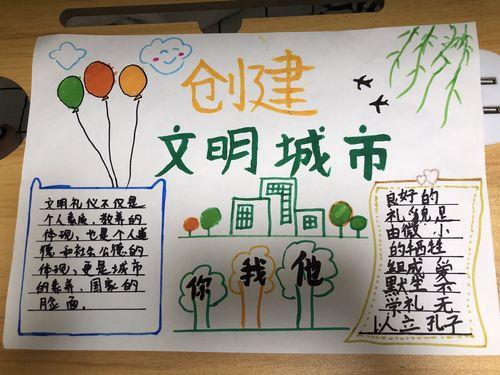 创建
文明城市
文明礼仪不仅是
个人素质、教养的
体现,也是个人道
德和社会公德的
体现,更是城市
的素养、国家的
脸面。
你 我 他
良好的
礼貌是
由微 小
的牺牲
组成 爱
默生 不
学礼 无
以立 孔子